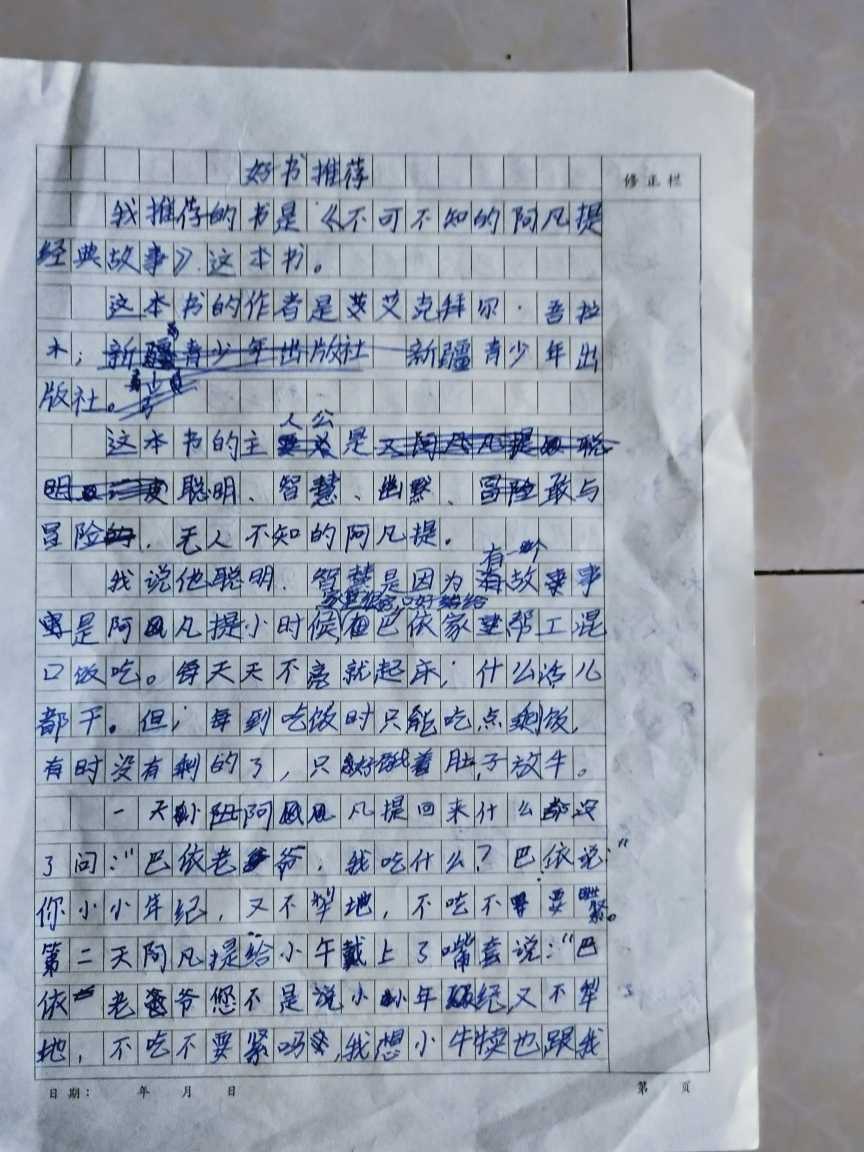 好书推荐
修正栏
我推荐的书是《不可不知的阿凡提
经典故事》这本书。
这本书的作者是艾艾克拜尔·吾拉
木；新疆青少年出版社 新疆青少年出
版社。
人公
这本书的主是
聪明、智慧、幽默、冒险敢与
冒险，无人不知的阿凡提。
有一个
我说他聪明、智慧是因为故事事
只好
是阿凡提小时候在巴依家帮工混
口饭吃。每天天不亮就起床；什么活儿
都干。但；每到吃饭时只能吃点剩饭，
有时没有剩的了，只好饿着肚子放牛。
一天阿凡提回来什么都没
了问："巴依老爷，我吃什么？巴依说："
你小小年纪，又不犁地，不吃不要紧。
第二天阿凡提给小午戴上了嘴套说："巴
依老爷您不是说小小年纪，又不犁
地，不吃不要紧吗，我想小牛犊也跟我
日期： 年 月 日
第 页